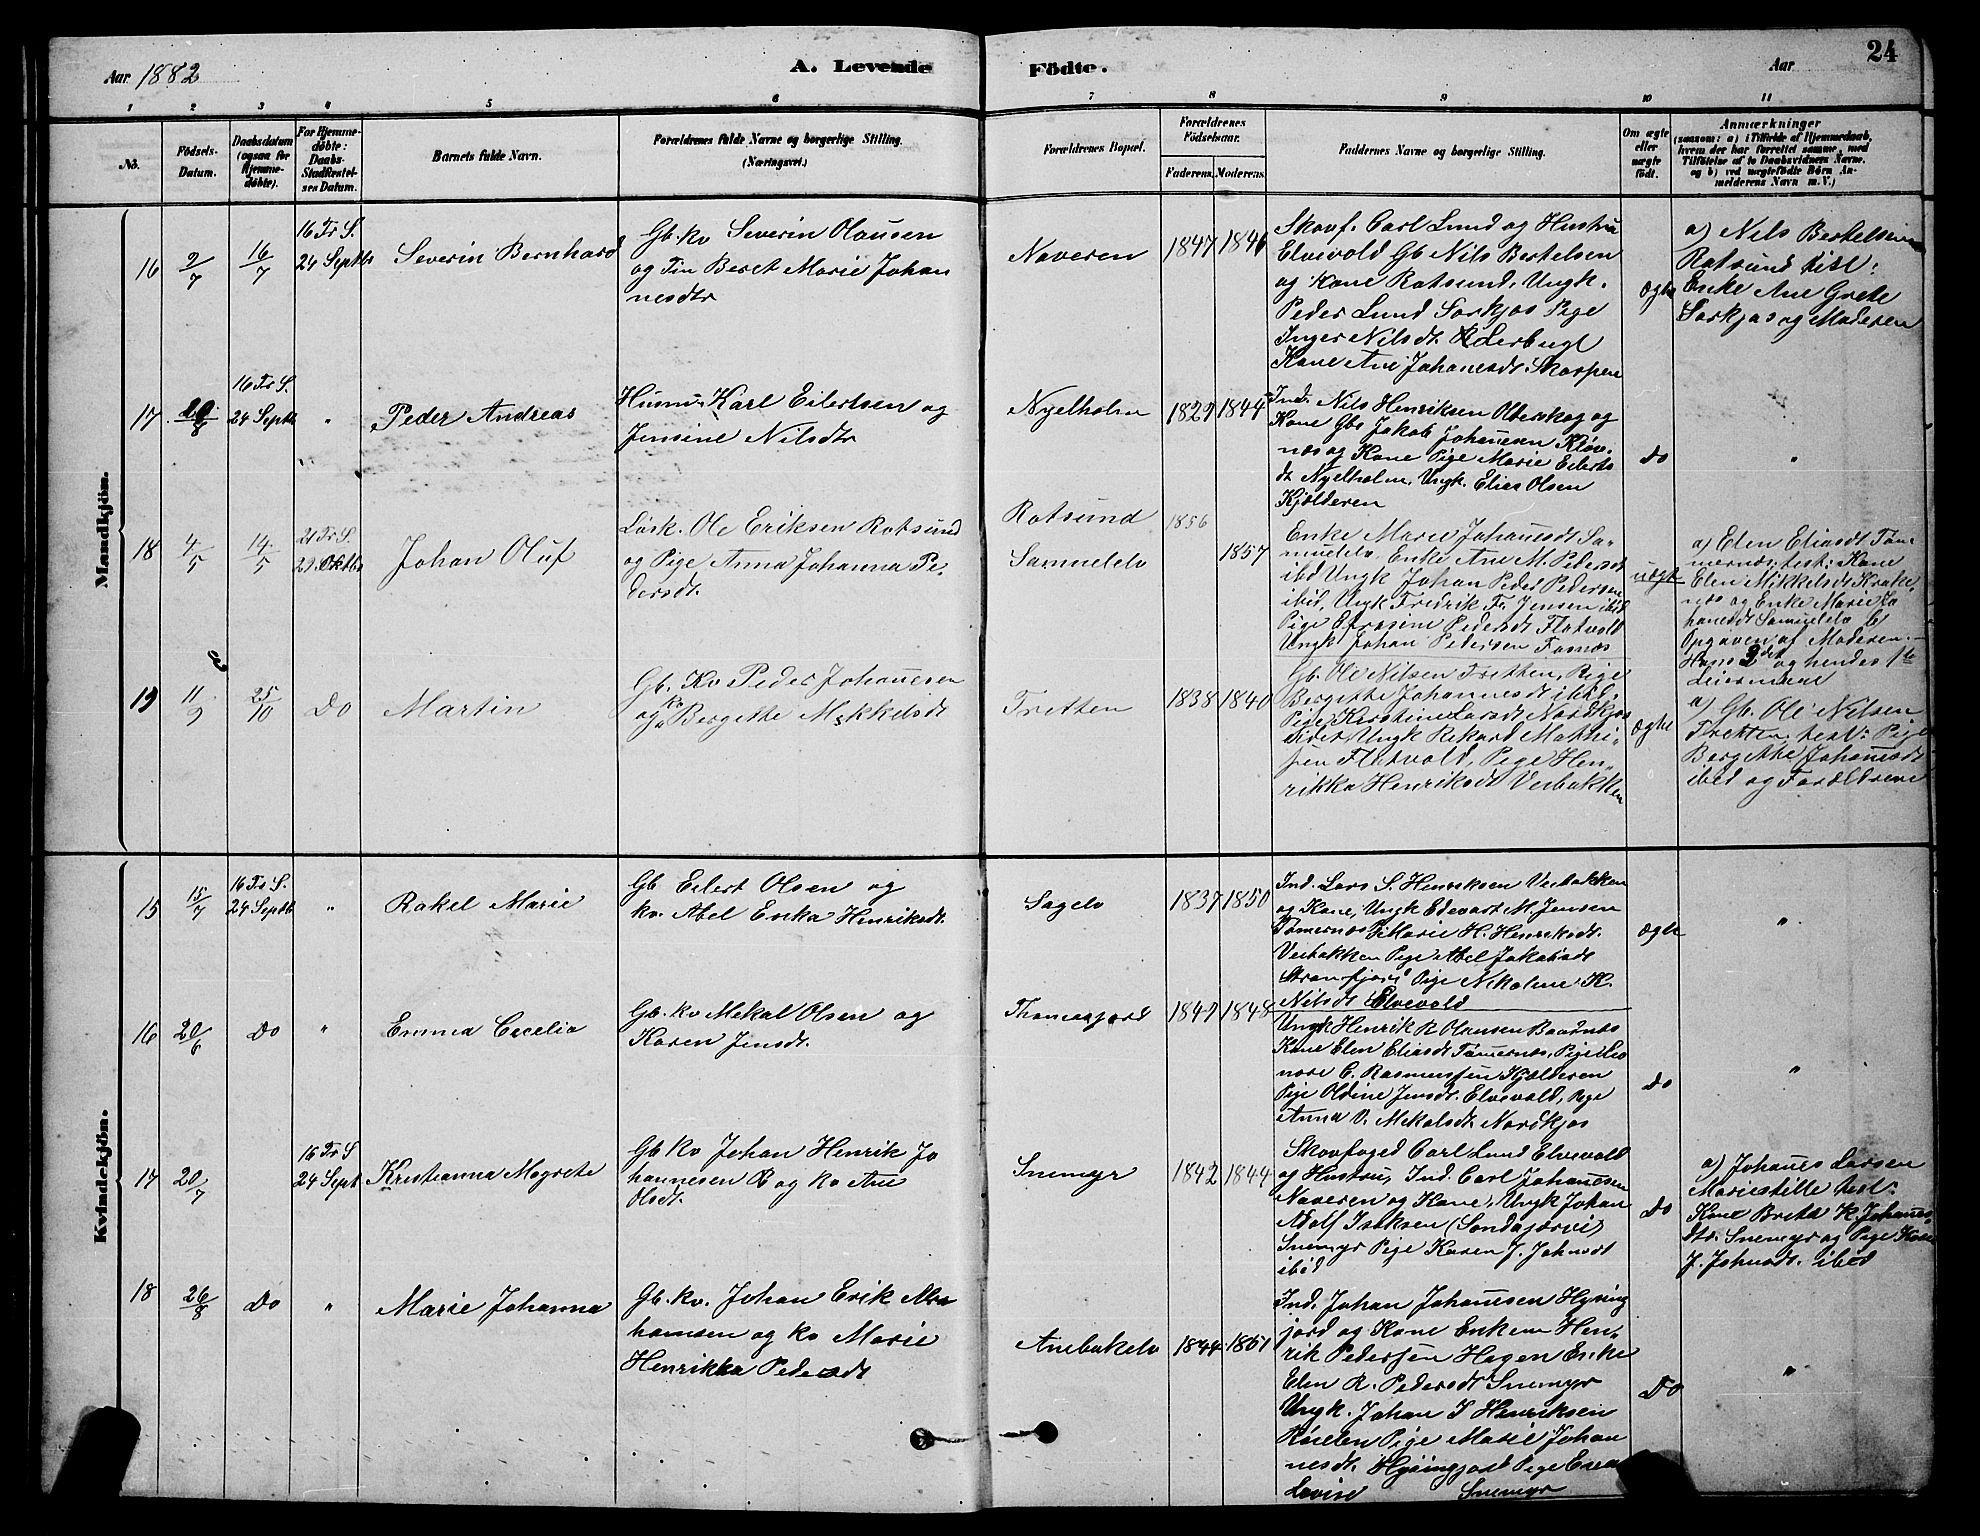 Aar 1882
A. Levende Födte.
Aar
24
1 2 3 4 5 6 7 8 9 10 11
No.
Födsels-
Datum.
Daabsdatum
(ogsaa for
Hjemme-
döbte).
For Hjemme-
döbte:
Daabs-
Stadfæstel-
ses Datum.
Barnets fulde Navn.
Forældrenes fulde Navne og borgerlige Stilling.
(Næringsvei.)
Forældrenes Bopæl.
Forældrenes
Födselsaar.
Faderens. Moderens.
Faddernes Navne og borgerlige Stilling.
Om ægte
eller
uægte
födt.
Anmærkninger
(saasom: a) i Tilfælde af Hjemmedaab,
hvem der har forrettet samme, med
Tilföielse af to Daabsvidners Navne.
og b) ved uægtefödte Börn An-
melderens Navn m. V.)
Mandkjön.
16
9/7
16/7
16 Tr S.
24 Septbr
Severin Bernhard
Gb. kv Severin Olausen
og Beret Marie Johan
nesdtr
Naveren
1847 1846
Skovf. Carl Lund og Hustru
Elvevold Gb Nils Bertelsen
og Kone Rotsund, Ungk.
Peder Lund Sorkjos Pige
Inger Nilsdt.
Kone Ane Johanesdt Skorpen
Ægte
a) Nils Bertelsen
Rotsund test:
Enke Ane Grete
Sorkjos og Moderen
17
20/8
16 Tr S.
24 Septb
"
Peder Andreas
Karl Eilertsen og
Jensine Nilsdtr
Nyelholm
1829 1844
Ind. Nils Henriksen Oterskog og
Kone Gbr Jakob Johanesen Kløv-
nes og Kone Pige Marie Eilerts
dt Nyelholm, Ungk. Elias Olsen
Kjölderen
Do
"
18
4/5
14/5
21 Tr S.
29 Oktbr
Johan Oluf
Løsk. Ole Eriksen Rotsund
og Pige Anna Johanna Pe-
dersdt.
Rotsund
Samuelelv
1856
1857
Enke Marie Johanesdt Sa-
muelelv, Enke Ane M. Pedersdt
ibd Ungk Johan Peder Pedersen
ibid, Ungk Fredrik Fr. Jensen ibid
Pige Efrosine Pedersdt Flatvold
Ungk Johan Pedersen
uægte
a) Elen Eliasdt Tøm-
mernes, test: Kone
Elen Mikkelsdt Krake-
nes og Enke Marie Jo
hanesdt Samuelelv b)
Opgaven af Moderen. -
Hans 3det og hendes 1ste
Leiermaal
19
11/9
25/10
Do
Martin
Gb. Kv Peder Johanesen
og Kv Bergitte Mikkelsdt
Tretten
1838 1840
Gb. Ole Nilsen Tretten, Pige
Bergitte Johannesdt ibid,
Pige Kirstine Larsdt Nordkjos
Ungk Rikard Mathi-
sen Flatvold, Pige Hen-
rikka Henriksdt Veibakken
Ægte
a) Gb. Ole Nilsen
Tretten, test: Pige
Bergitte Johanesdt
ibid og Forældrene
Kvindekjön.
15
15/7
16 Tr S.
24 Septb
"
Rakel Marie
Gb Eilert Olsen og
kv. Abel Erika Henriksdt.
Sagelv
1837 1850
Ind. Lars S. Henriksen Veibakken
og Kone, Ungk Edevart M. Jensen
Tømernes Marie H. Henriksdt.
Veibakken Pige Abel Jakobsdt
Straumfjord Pige Nikoline K.
Nilsdt Elvevold
Ægte
"
16
20/6
Do
"
Emma Cecelia
Gb. kv Mekal Olsen og
Karen Jensdt.
1847 1848
Ungk Henrik R Olausen Baadnes
Kone Elen Eliasdt Tømernes, Pige Leo
nore C. Rasmussen Kjölderen
Pige Oldine Jensdt. Elvevold, Pige
Anna V. Mekalsdt. Nordkjos
Do
"
17
20/7
16 Tr S
24 Sept
Kristianna Magrete
Gb kv Johan Henrik Jo
hannesen og kv Ane
Olsdt.
Snemyr
1842 1844
Skovfoged Carl Lund Elvevold
og Hustru, Ind. Carl Johanesen
Naveren og Kone, Ungk Johan
Adolf Isaksen (Sondajærvi)
Snemyr Pige Karen J. Johnsdt
ibid
Do
a) Johanes Larsen
Mariestille test:
Kone Brita K. Johanes-
dtr. Snemyr og Pige Karen
J. Johnsdt. ibid
18
26/8
Do
"
Marie Johanna
Gb. kv. Johan Erik Abra
hamsen og kv Marie
Henrikka Pedersdt
Anebakelv
1844 1851
Ind. Johan Johanesen Hysing
jord og Kone Enkem Hen-
rik Pedersen Hagen Enke
Elen R. Pedersdt Snemyr
Ungk. Johan I Henriksen
Røielen Pige Marie Johan
nesdt. Hysingjord Pige
Lovise Snemyr
Do
"